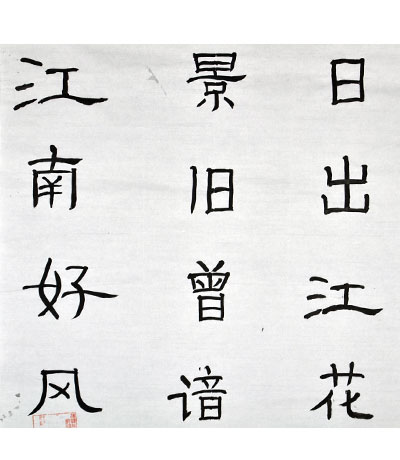 江南好风
景旧曾谙
日出江花